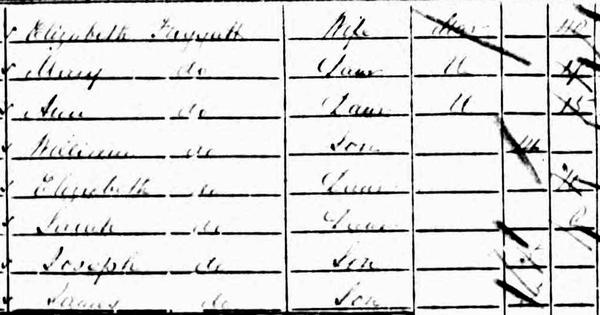 Elizabeth Faggutt Wife Mar 40
Mary do Daur U
Ann do Daur U 15
William do Son 14
Elizabeth do Daur
Sarah do Daur
Joseph do Son
James do Son